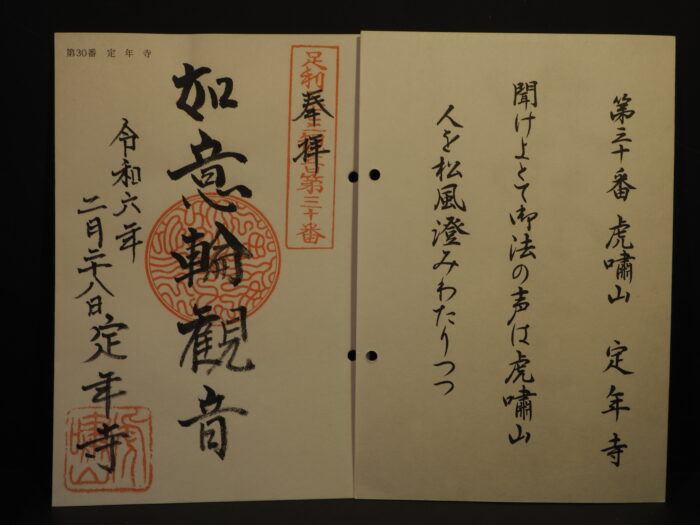 第三十番 虎嘯山 定年寺
聞けよとて御法の声は虎嘯山
人を松風澄みわたりつつ
第30番 定年寺
奉拝
足利三十三番第三十番
如意輪観音
令和六年
二月二十八日
定年寺
虎嘯山